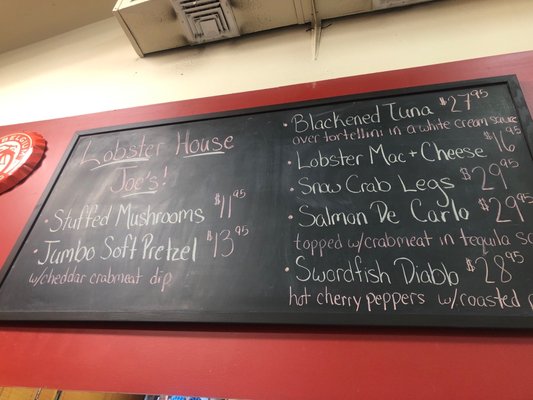 Lobster House
Joe's!
• Stuffed Mushrooms $11 95
• Jumbo Soft Pretzel $13 95
w/cheddar crabmeat dip
• Blackened Tuna $27 95
over tortellini in a white cream sauce
• Lobster Mac + Cheese $16 95
• Snow Crab Legs $29 95
• Salmon De Carlo $29 95
topped w/crabmeat in tequila
• Swordfish Diablo $28 95
hot cherry peppers w/